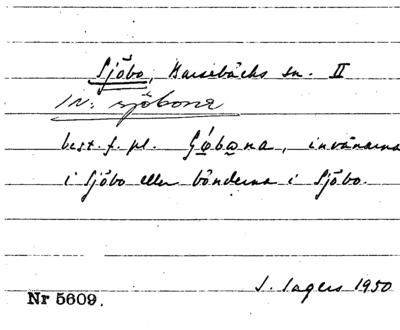 Sjöbo, Barsebäcks sn. II
IN: sjöbona
best. f. pl. Gǿbana, invånarna
i Sjöbo eller bönderna i Sjöbo.
I. Ingers 1950
Nr 5609.